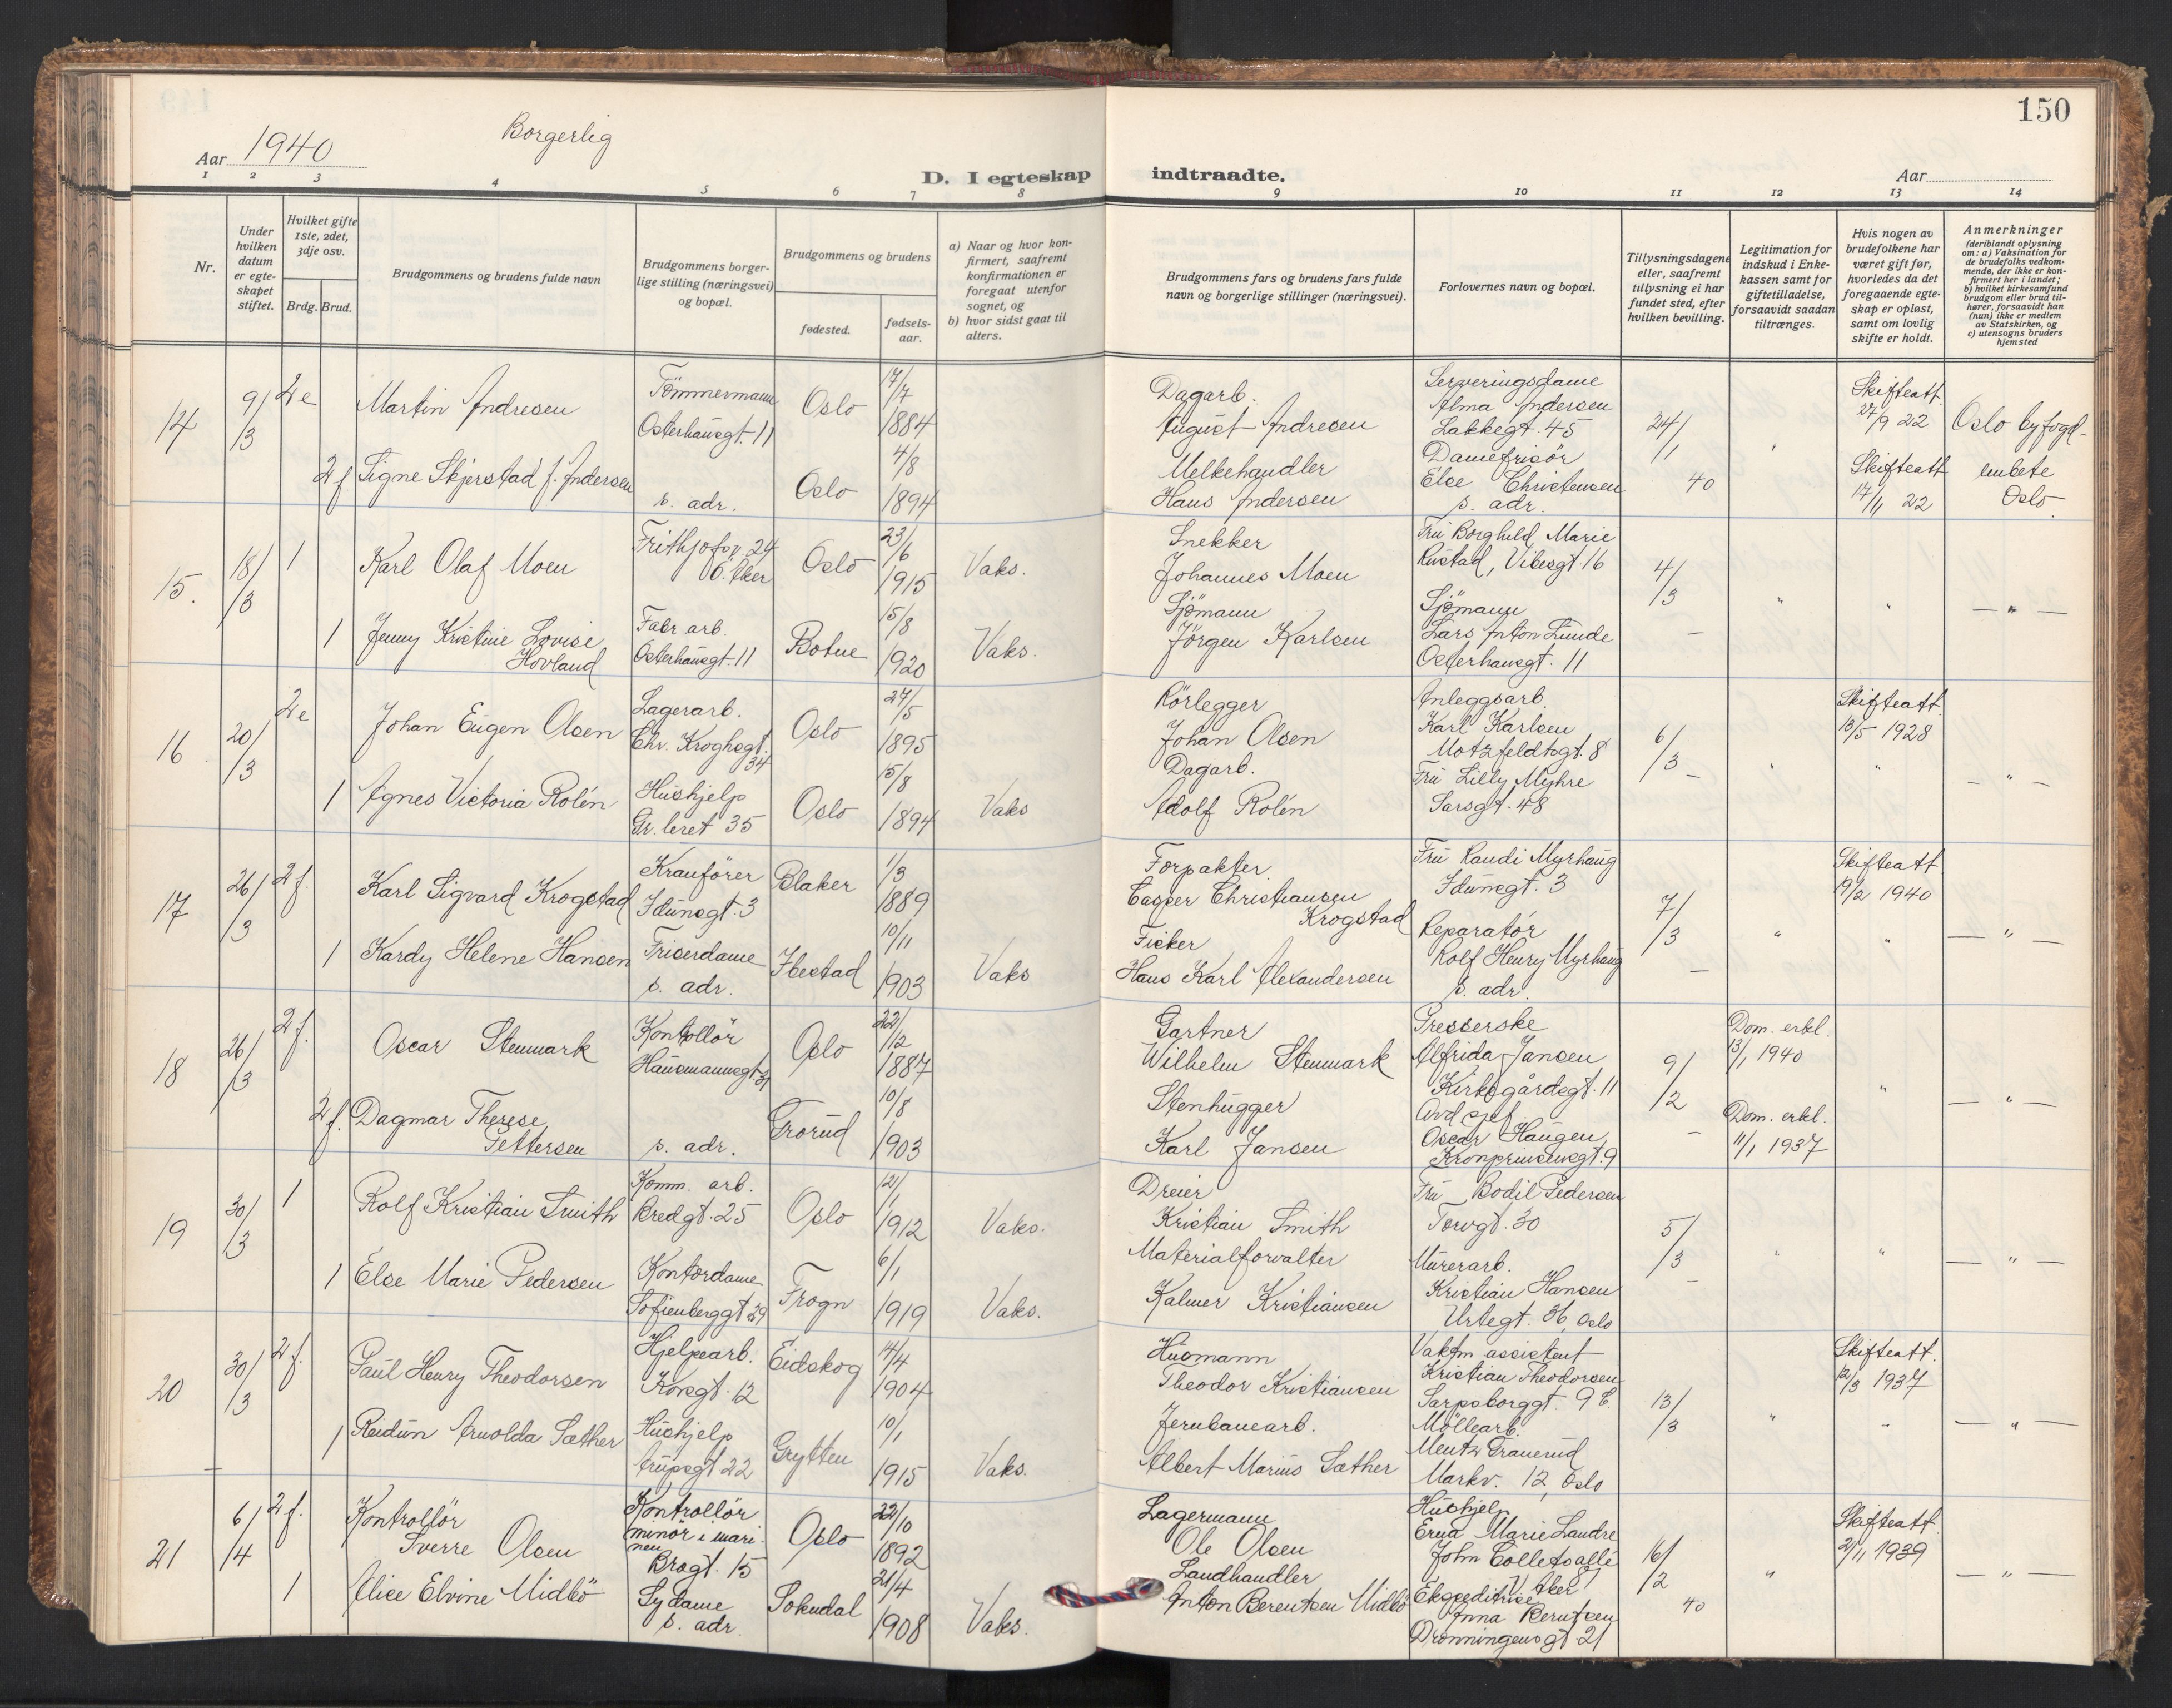 150
Borgerlig
Aar 1940
D. I egteskap indtraadte.
Aar
1 2 3 4 5 6 7 8 9 10 11 12 13 14
Nr.
Under hvilken datum er egte-skapet stiftet.
Hvilket gifte 1ste, 2det, 3dje osv.
Brdg. Brud.
Brudgommens og brudens fulde navn
Brudgommens borger-lige stilling (næringsvei) og bopæl.
Brudgommens og brudens
fødested.
fødsels-aar.
a) Naar og hvor kon-firmert, saafremt konfirmationen er foregaat utenfor sognet, og
b) hvor sidst gaat til alters.
Brudgommens fars og brudens fars fulde navn og borgerlige stillinger (næringsvei).
Forlovernes navn og bopæl.
Tillysningsdagene eller, saafremt tillysning ei har fundet sted, efter hvilken bevilling.
Legitimation for indskud i Enke-kassen samt for giftetilladelse, forsaavidt saadan tiltrænges.
Hvis nogen av brudefolkene har været gift før, hvorledes da det foregaaende egte-skap er opløst, samt om lovlig skifte er holdt.
Anmerkninger
(deriblandt oplysning om: a) Vaksination for de brudefolks vedkom-mende, der ikke er kon-firmert her i landet; b) hvilket kirkesamfund brudgom eller brud til-hører, forsaavidt han (hun) ikke er medlem av Statskirken, og c) utensogns bruders hjemsted
14 9/3 2e Martin Andresen Tømmermann Osterhausgt. 11 Oslo 17/7 1884
Dagarb. August Andresen
Serveringsdame Alma Andersen Lakkegt. 45
24/1 40 " Skifteatt. 27/9 22 Oslo byfogd-
2f Signe Skjerstad f. Andersen s. adr. Oslo 4/8 1894
Melkehandler Hans Andersen
Damefrisör Else Christensen s. adr.
Skifteatt 17/11 22 embete Oslo.
15. 18/3 1 Karl Olaf Moen Frithjofsv. 24 Ö. Aker Oslo 23/6 1915 Vaks.
Snekker Johannes Moen
Fru Borghild Marie Rustad, Vibesgt. 16
4/3 – " " — " —
1 Jenny Kristine Lovise Hovland Fabr arb. Osterhausgt. 11 Botne 15/8 1920 Vaks.
Sjömann Jörgen Karlsen
Sjömann Lars Anton Lunde Osterhausgt. 11
16 20/3 2e Johan Eugen Olsen Lagerarb. Chr. Kroghsgt. 34 Oslo 27/5 1895
Rörlegger Johan Olsen
Anleggsarb. Karl Karlsen Motzfeldtsgt. 8
6/3 – " Skifteatt. 18/5 1928
1 Agnes Victoria Rolén Hushjelp Gr. leret 35 Oslo 15/8 1894 Vaks
Dagarb. Adolf Rolén
Fru Lilly Myhre Sarsgt. 48
" – " –
17 26/3 2f. Karl Sigvard Krogstad Kranförer Idunsgt. 3 Blaker 1/3 1889
Forpakter Casper Christiansen Krogstad
Fru Randi Myrhaug Idunsgt. 3
7/3 – " Skifteatt 19/2 1940
1 Kardy Helene Hansen Friserdame s. adr. Ibestad 10/11 1903 Vaks
Fisker Hans Karl Alexandersen
Reparatør Rolf Henry Myrhaug s. adr.
" — " —
18 26/3 2f. Oscar Stenmark Kontollör Hausmannsgt 31 Oslo 22/12 1887
Gartner Wilhelm Stenmark
Presserske Alfrida Jansen Kirkegårdsgt. 11
9/2 – Dom. erkl. 13/1 1940
2f. Dagmar Therese Pettersen s. adr. Grorud 10/8 1903
Stenhugger Karl Jansen
Avd sjef. Oscar Haugen Kronprinsensgt. 9
Dom. erkl. 11/1 1937 " — " —
19 30/3 1 Rolf Kristian Smith Komm. arb. Bredgt. 25 Oslo 12/1 1912 Vaks.
Dreier Kristian Smith
Fru Bodil Pedersen Torvgt. 30
5/3 – " " — " —
1 Else Marie Pedersen Kontordame Sofienberggt 29 Frogn 6/1 1919 Vaks.
Materialforvalter Kalmer Kristiansen
Murerarb. Kristian Hansen Urtegt. 36, Oslo
20 30/3 2f. Paul Henry Theodorsen Hjelpearb. Korsgt. 12 Eidskog 14/4 1904
Husmann Theodor Kristiansen
Vaktm assistent Kristian Theodorsen Sarpsborggt. 9 C.
13/3 " Skifteatt. 12/3 1937
1 Reidun Arnolda Sæther Hushjelp Arupsgt 22 Grytten 10/1 1915 Vaks.
Jernbanearb. Albert Marius Sæther
Møllearb. Mentz Granerud Markv. 12, Oslo
" — " —
21 6/4 2f. Kontrollör Sverre Olsen Kontrollör minör i mari-nen Brogt. 15 Oslo 22/10 1892
Lagermann Ole Olsen
Hushjelp Erna Marie Landre John Colletsallé 87 V. Aker
16/2 40 " Skifteatt. 2/11 1939
1 Alice Elvine Midbö Sydame s. adr. Sokndal 21/4 1908 Vaks.
Landhandler Anton Berentsen Midbö
Ekspeditrise Anna Berntsen Dronningensgt. 21
— " —